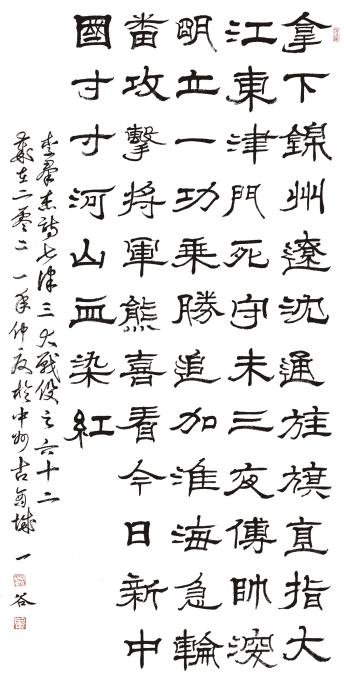 拿下錦州遼沈通旌旗直指大
江東津門死守未三夜傅帥深
明立一功乘勝追加淮海急輪
番攻擊將軍熊喜看今日新中
國寸寸河山血染紅
詩七律三大戰役之六十二
歲在二零二一年仲夏於中州古城 一谷